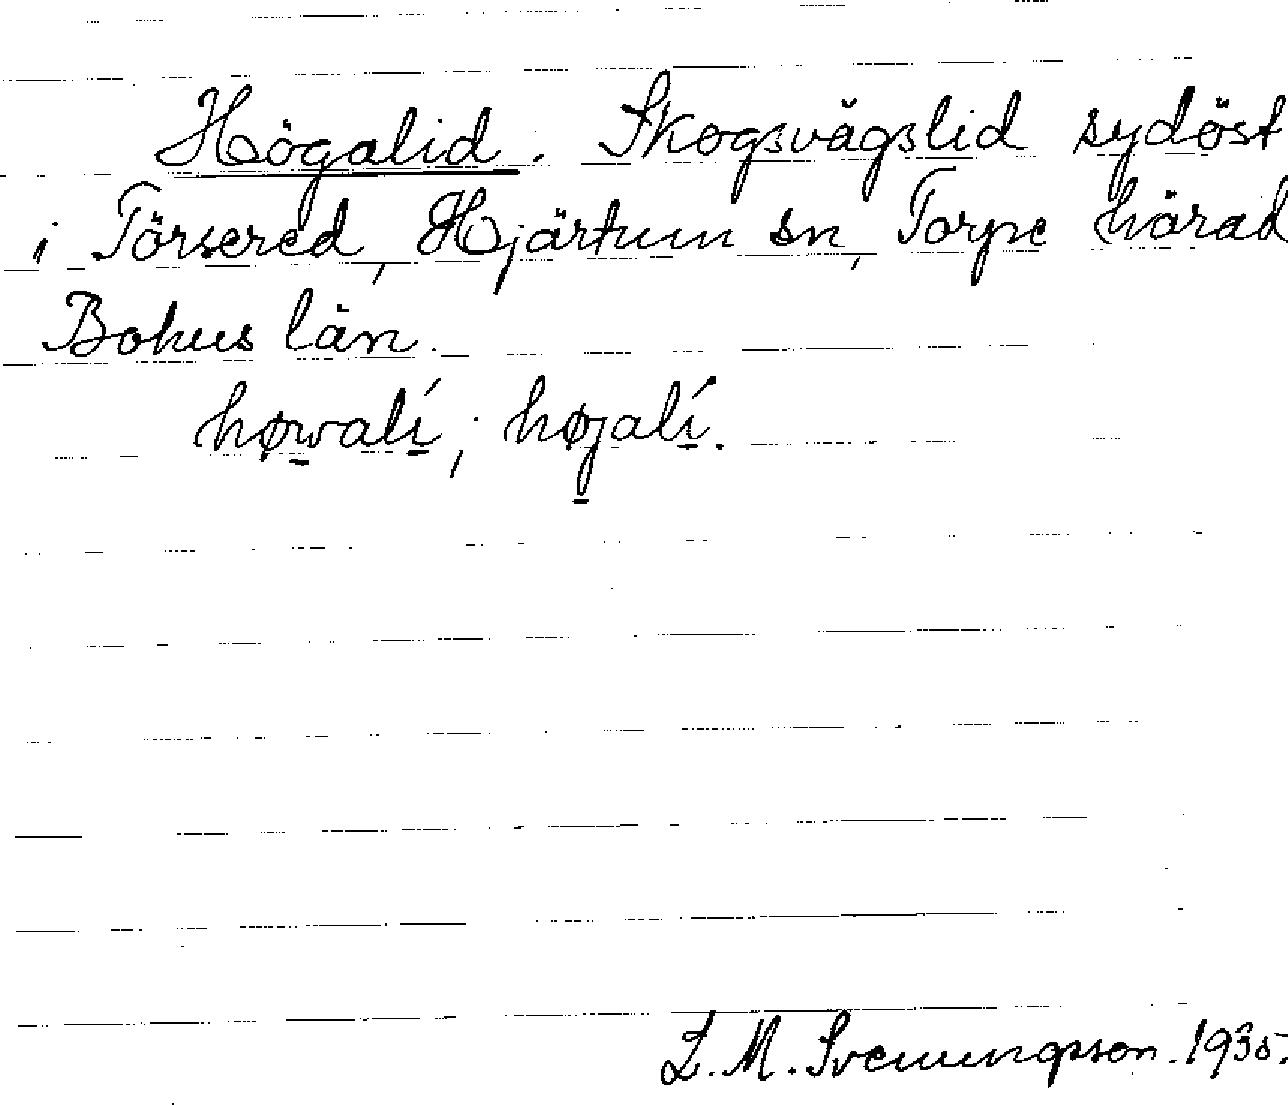 Högalid. Skogsvägslid sydöst
i Törsered, Hjärtum sn, Torpe härad
Bohus län.
høwalí; højalí.
L. M. Svenungsson. 1935.